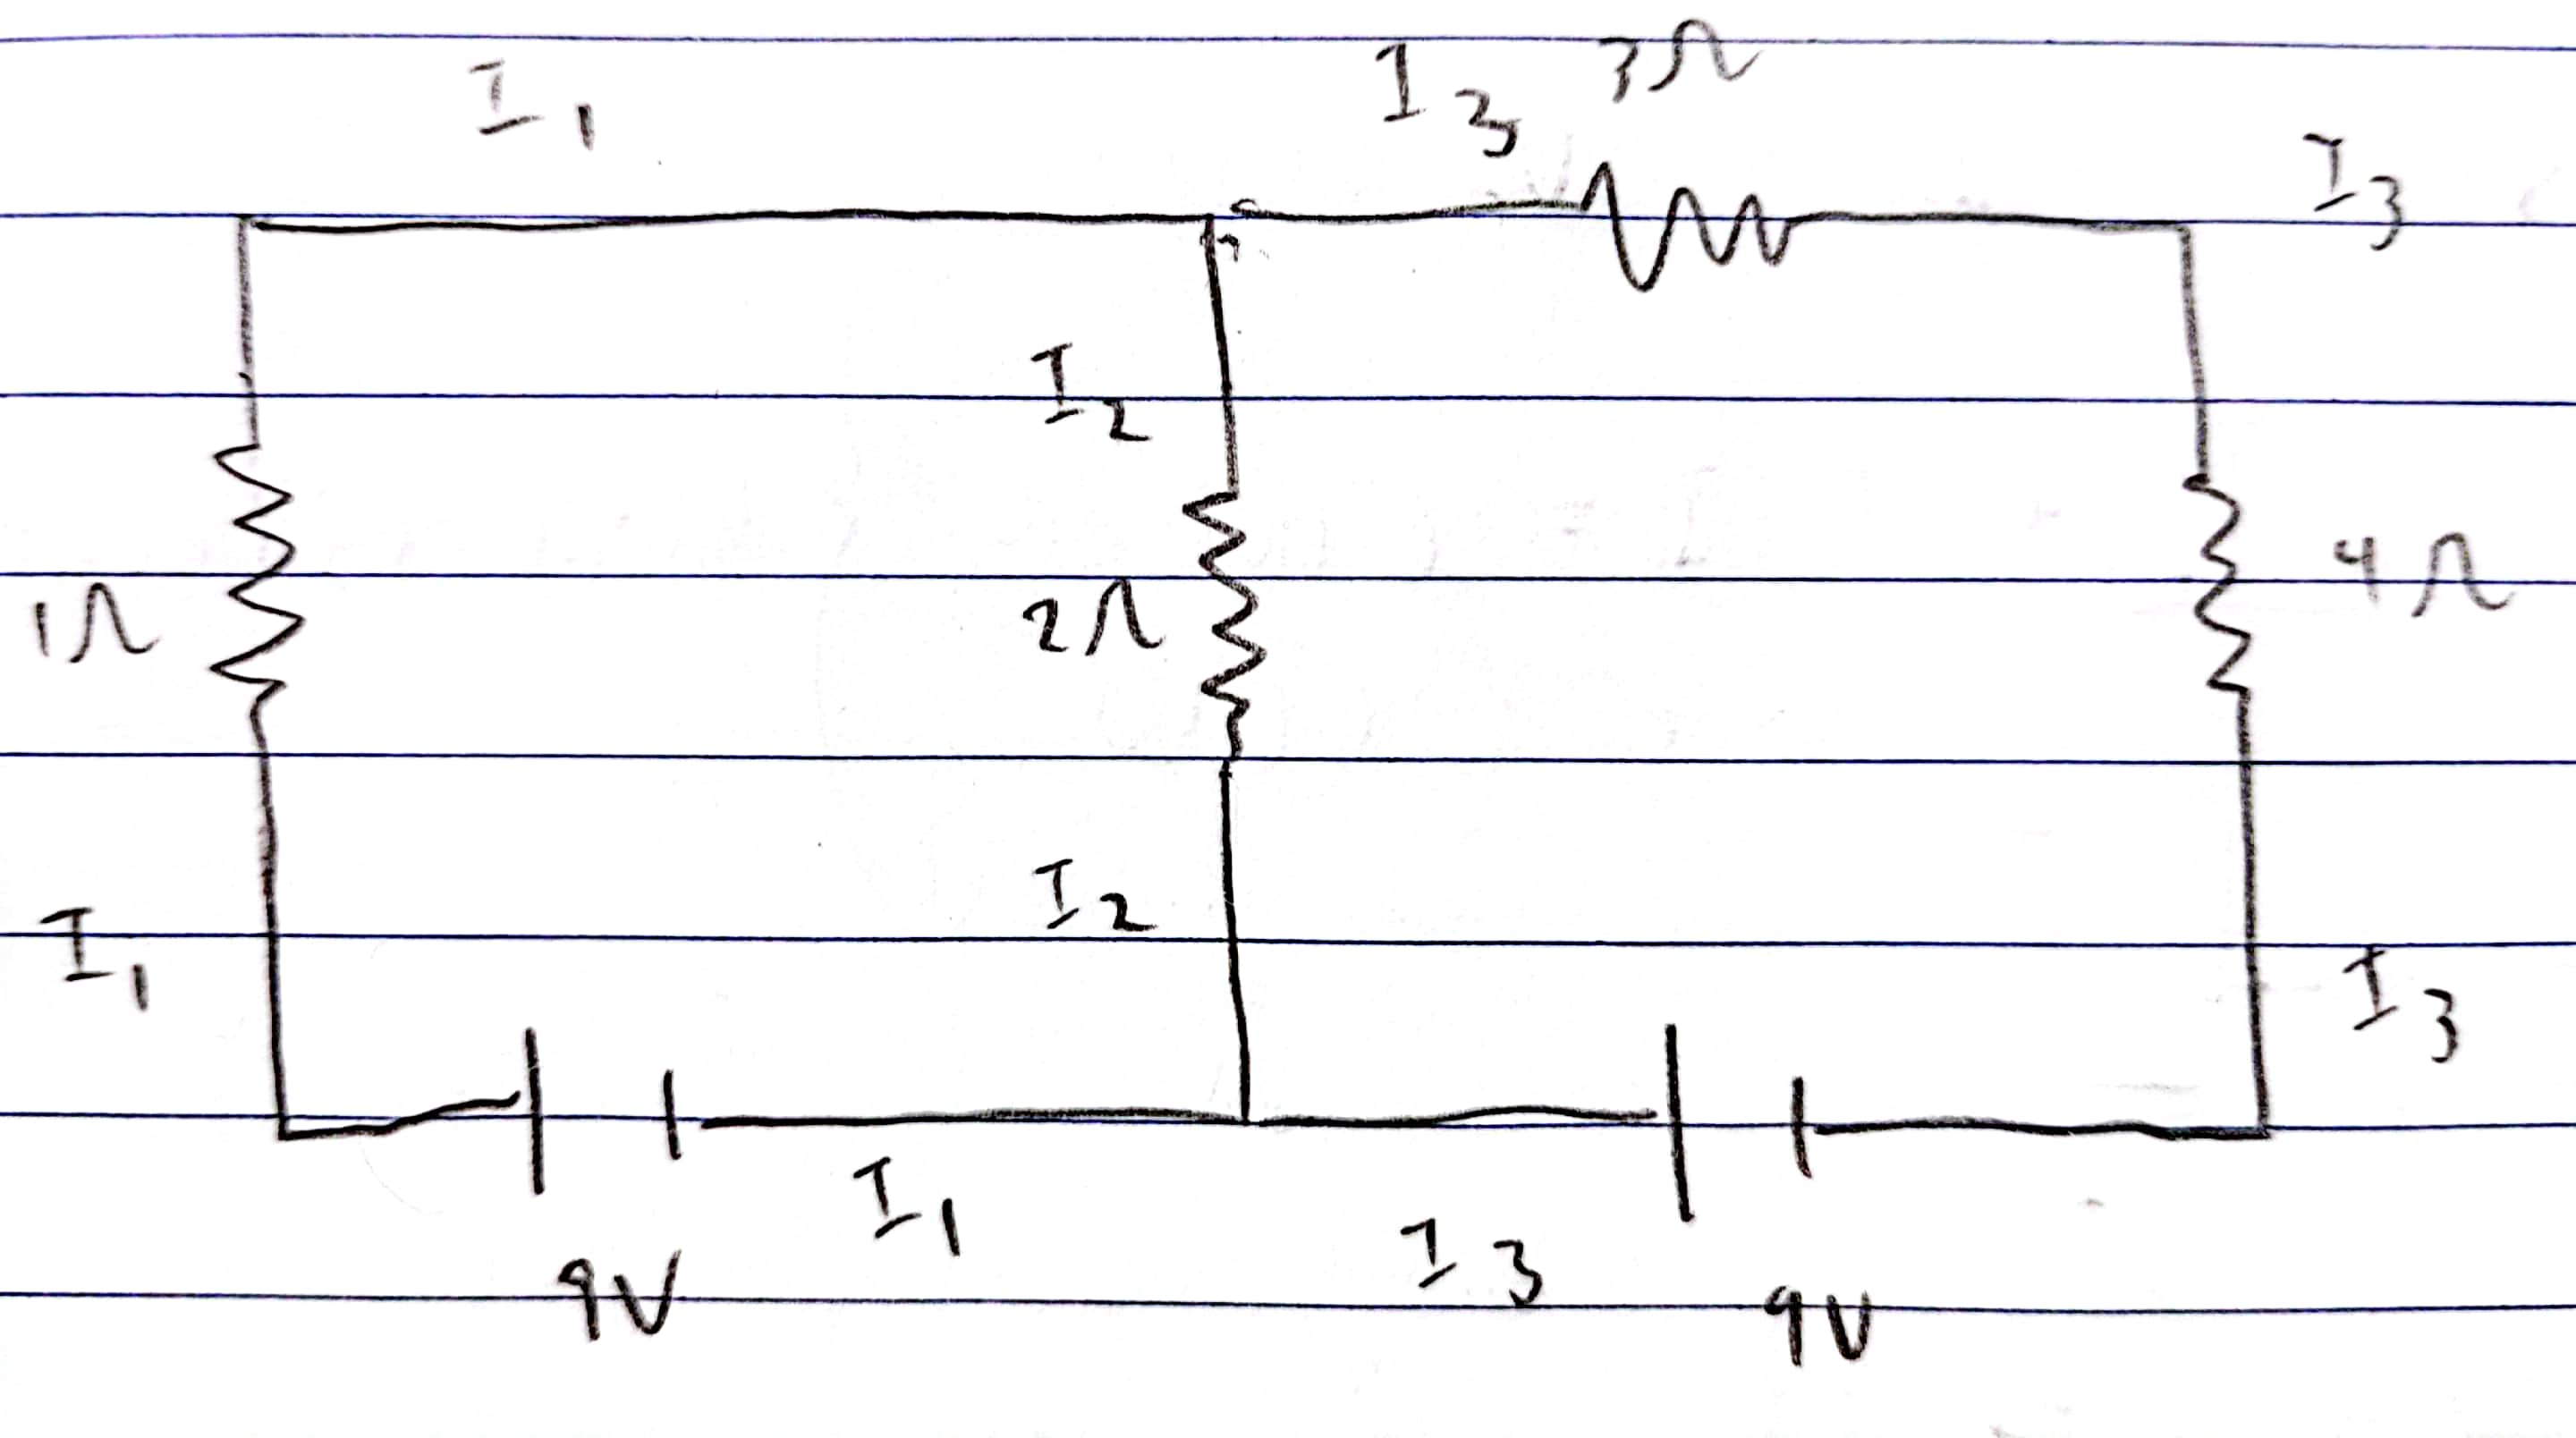 I1
I3 3Ω
I3
I2
1Ω
2Ω
4Ω
I2
I1
I3
I1
I3
9V
9V